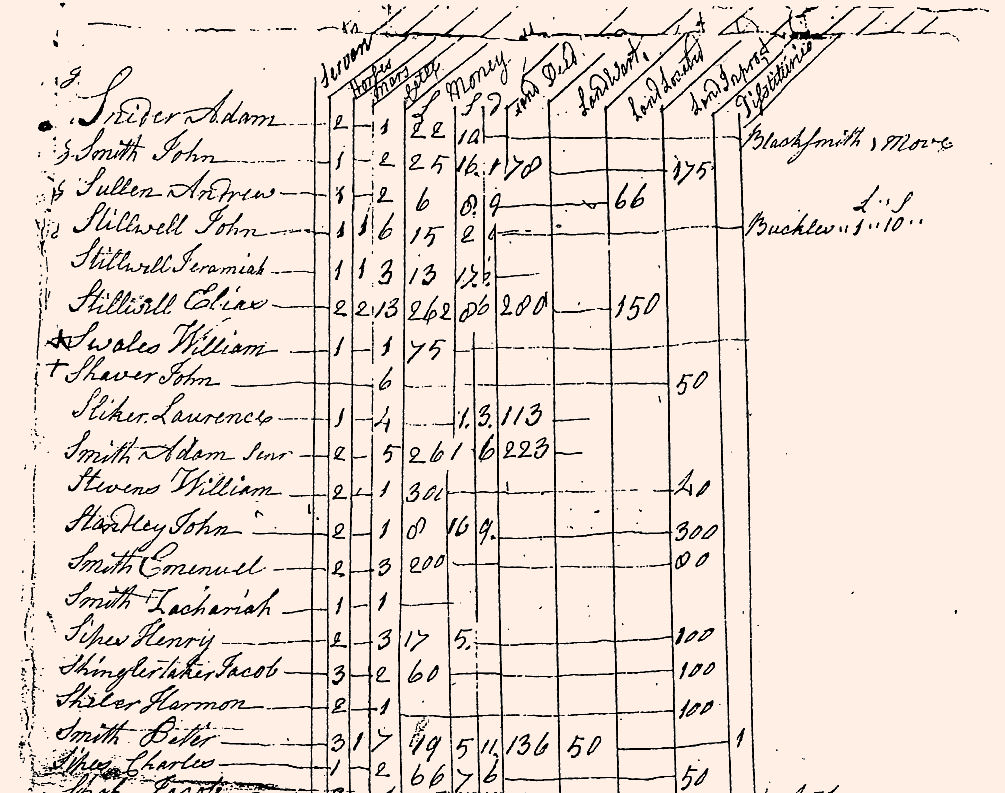 Horses Mares Cattle Money Land Deed Land Wart. Land Located Land Improd
£ S d
Snider Adam 2 1 22 10 Blacksmith
Smith John 1 2 25 16 1 78 175
Sullen Andrew 1 2 6 8 9 66
£ " S
Stillwell John 1 1 6 15 2 Buckles " 1 " 10 "
Stillwell Jeramiah 1 1 3 13 17
Stillwell Elias 2 2 13 262 8 6 280 150
Swales William 1 1 75
Shaver John 6 50
Stiker Laurence 1 4 1. 3. 113
Smith Adam Senr 2 5 26 1 6 223
Stevens William 2 1 30 40
Standley John 2 1 8 16 9. 300
Smith Emenuel 2 3 200 80
Smith Zachariah 1 1
Sipes Henry 2 3 17 5. 100
Shinglertaker Jacob 3 2 60 100
Shiler Harmon 2 1 100
Smith Peter 3 1 7 79 5 11 136 50 1
Sipes Charles 1 2 66 7 6 50